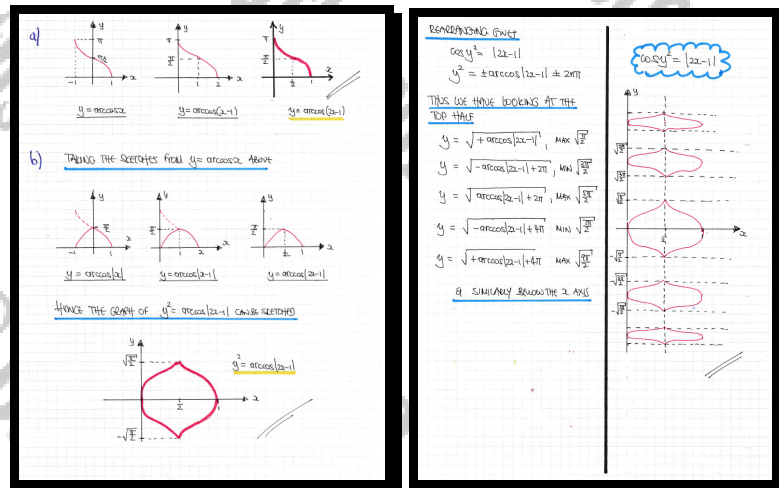 a)
y
π
π/2
-1
1
x
y = arccosx
y
π
π/2
1
2
x
y = arccos(x-1)
y
π
π/2
1/2
1
x
y = arccos(2x-1)
b) TAKING THE SKETCHES FROM y = arccosx ABOVE
π/2
-1
1
x
y = arccos|x|
π/2
1
x
y = arccos|x-1|
π/2
1/2
1
x
y = arccos|2x-1|
HENCE THE GRAPH OF y² = arccos|2x-1| CAN BE SKETCHED
y
√π/2
-√π/2
1/2
1
x
y² = arccos|2x-1|
REARRANGING
cosy² = |2x-1|
y² = ±arccos|2x-1| ± 2nπ
THUS WE HAVE LOOKING AT THE
TOP HALF
y = √+arccos|2x-1| , MAX √π/2
y = √-arccos|2x-1|+2π , MIN √3π/2
y = √arccos|2x-1|+2π , MAX √5π/2
y = √-arccos|2x-1|+4π MIN √7π/2
y = √+arccos|2x-1|+4π MAX √9π/2
& SIMILARLY BELOW THE x AXIS
cosy² = |2x-1|
y
x
1/2